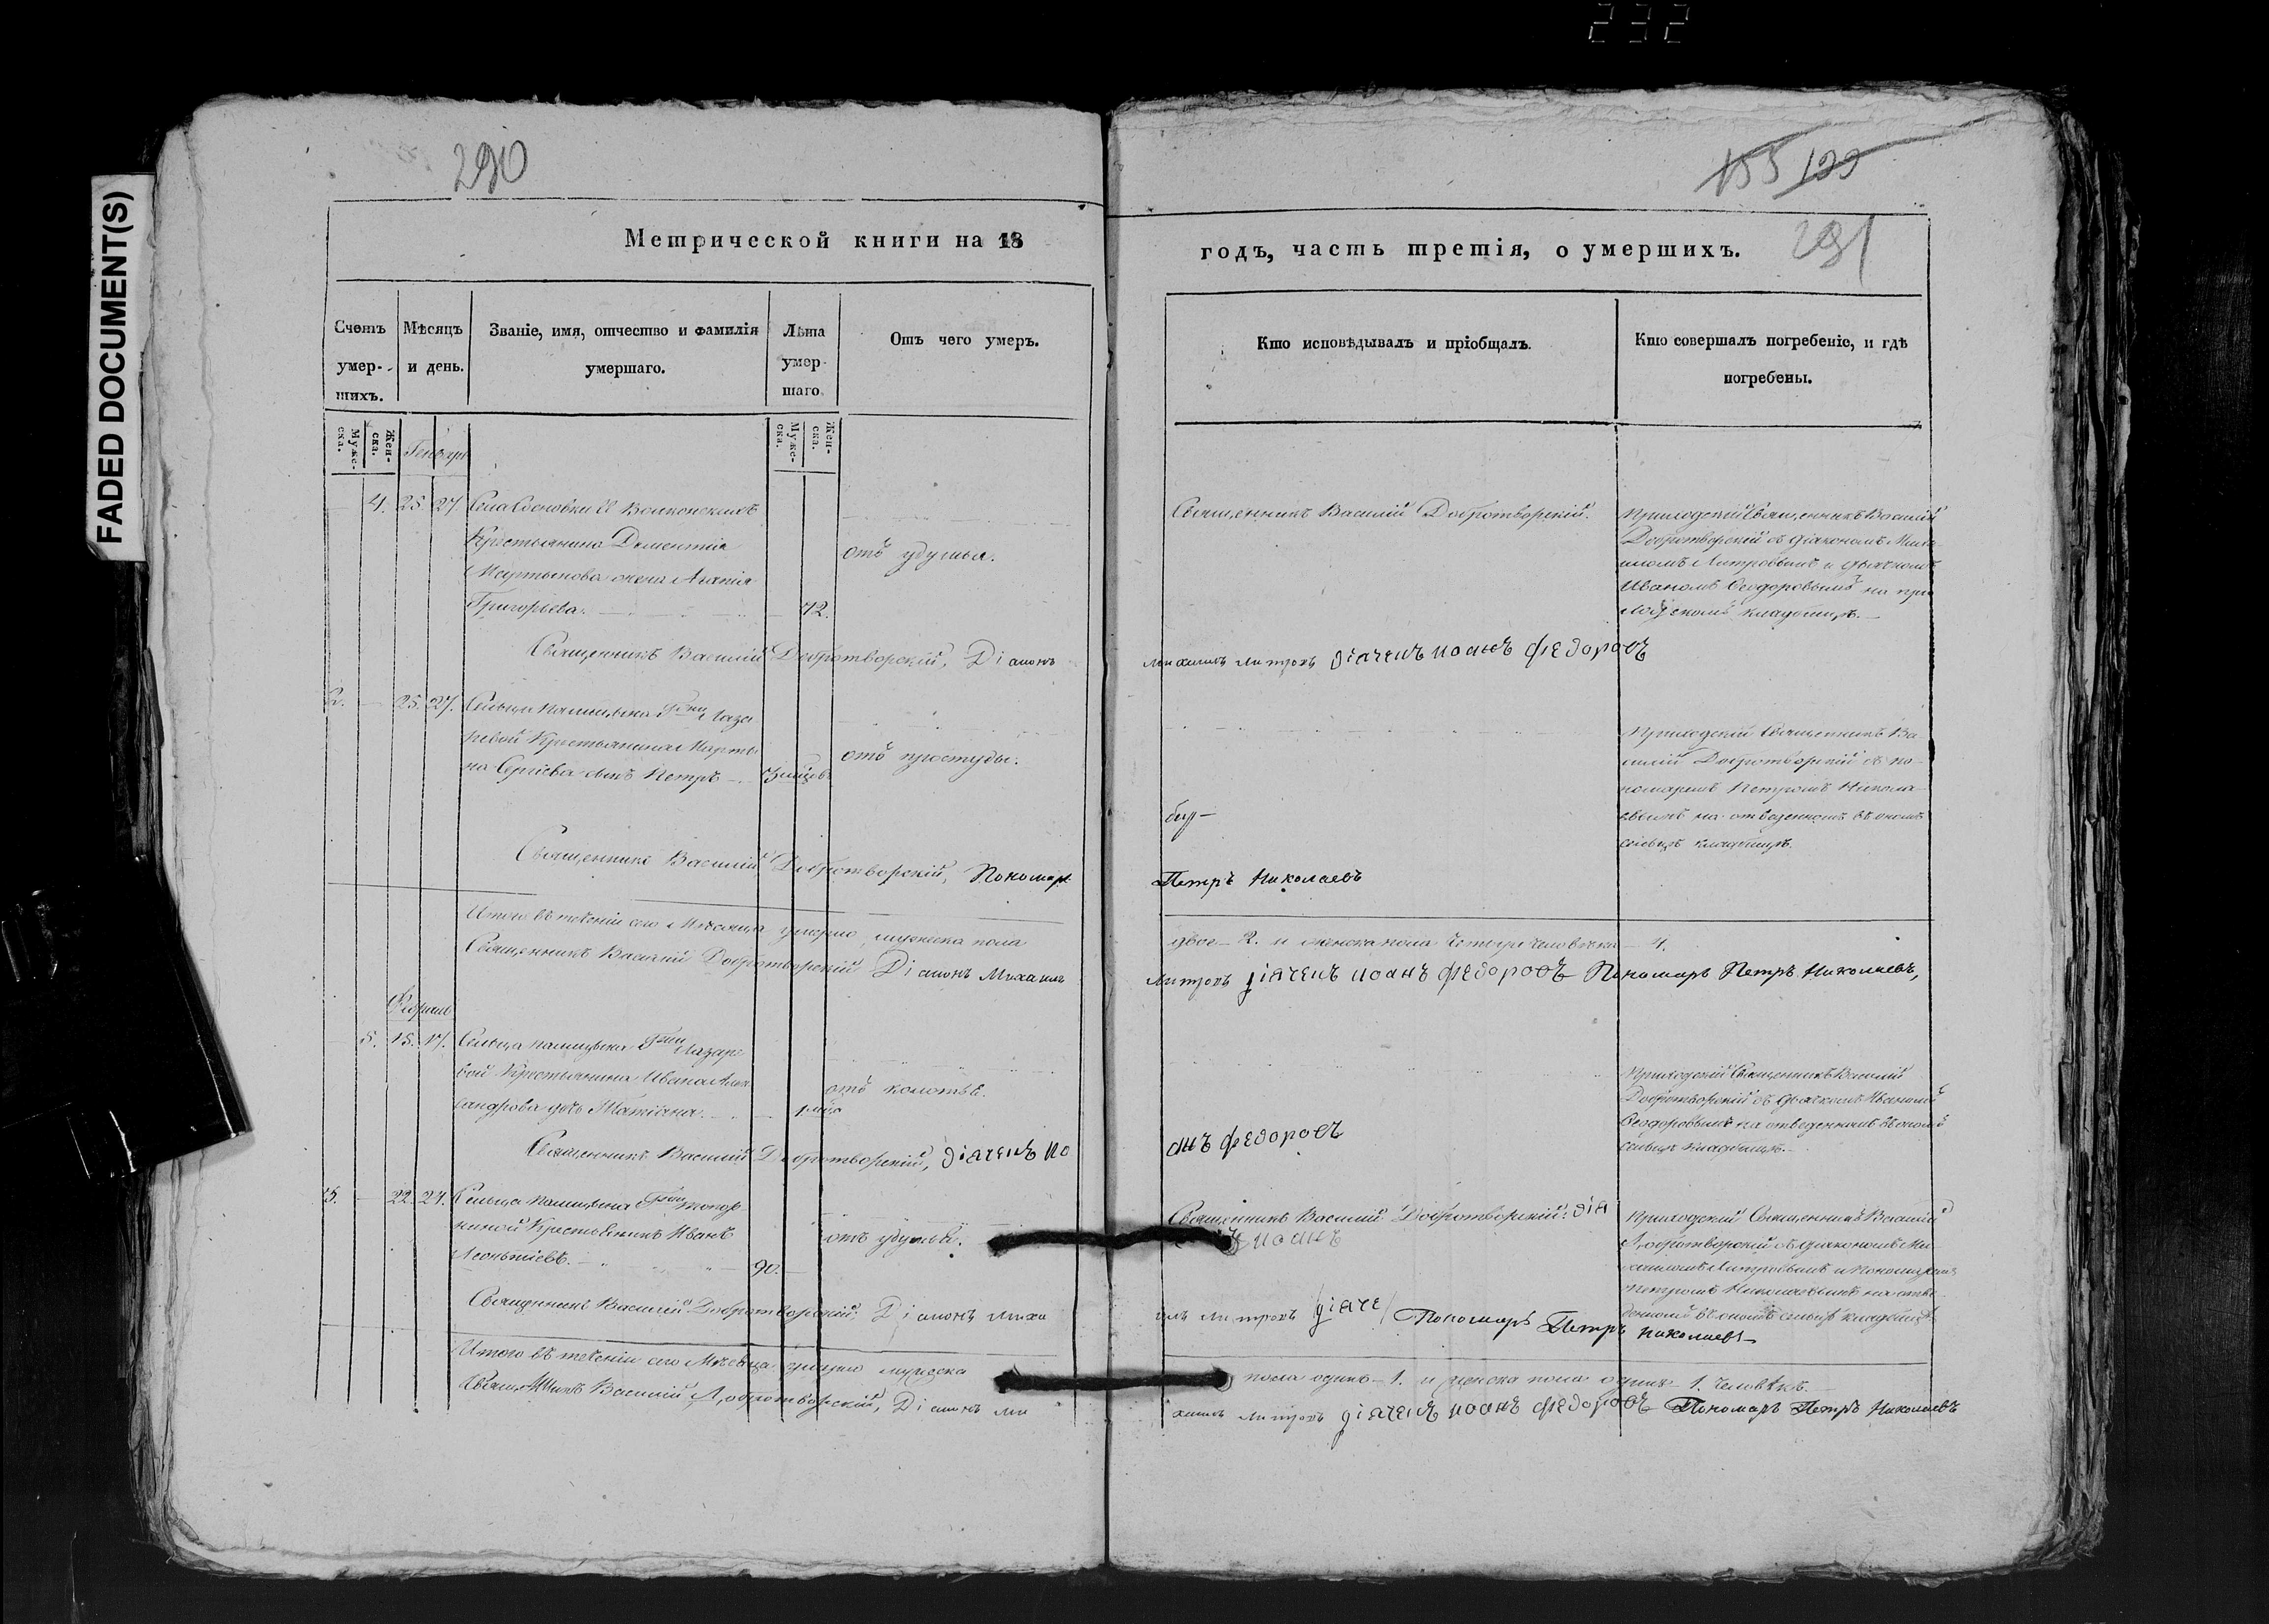 232
FADED DOCUMENT(S)
290
155 199
291
Метрической книги на 18
годъ, часть третія, о умершихъ.
Счетъ умер-шихъ.
Мѣсяцъ и день.
Званіе, имя, отчество и фамилія умершаго.
Лѣта умер-шаго.
Отъ чего умеръ.
Кто исповѣдывалъ и пріобщалъ.
Кто совершалъ погребеніе, и гдѣ погребены.
Муже-ска.
Жен-ска.
Генваря
Муже-ска.
Жен-ска.
4. 25. 27. Села Сосновки
Крестьянина Дементія
Мартынова жена
Григорьева. 72.
отъ удушья.
Священникъ Василій Добротворскій.
Приходскій Священникъ Василій
Добротворскій съ діакономъ Миха
иломъ Митровымъ и дьячкомъ
Иваномъ Ѳеодоровымъ на при
ходскомъ кладбищѣ.
Священникъ Василій Добротворскій, Діаконъ
Михаилъ Митровъ діячекъ иоанъ федоровъ
2. 25. 27. Сельца Г-жи Лаза
ревой Крестьянина Марты
на Сергѣева сынъ Петръ 3 мѣсяц.
отъ простуды.
Приходскій Священникъ Ва
силій Добротворскій съ по
номаремъ Петромъ Никола
евымъ на отведенномъ въ ономъ
сельцѣ кладбищѣ.
Священникъ Василій Добротворскій, Пономарь
Петръ Николаевъ
Итого въ теченіи сего Мѣсяца умерло мужеска пола
двое 2. и женска пола четыре человѣка 4.
Священникъ Василій Добротворскій Діаконъ Михаилъ
Митровъ діячекъ иоанъ федоровъ Пономарь Петръ Николаевъ,
Февраль
5. 15. 17. Сельца Г-жи Лазаре
вой Крестьянина Ивана Алек
сандрова дочь Татіана.
отъ колотья.
Приходскій Священникъ Василій
Добротворскій съ дьячкомъ Иваномъ
Ѳеодоровымъ на отведенномъ въ ономъ
сельцѣ кладбищѣ.
Священникъ Василій Добротворскій, діячекъ ио
анъ федоровъ
3. 22. 24. Сельца Г-жи
Крестьянинъ Иванъ
Леонтіевъ. 90.
отъ удушья.
Священникъ Василій Добротворскій. дія
иоанъ
Приходскій Священникъ Василій
Добротворскій съ діакономъ Ми
хаиломъ Митровымъ и Пономаремъ
Петромъ Николаевымъ на отве
денномъ въ ономъ сельцѣ кладбищѣ
Священникъ Василій Добротворскій, Діаконъ Миха
илъ Митровъ діяче Пономарь Петръ Николаевъ
Итого въ теченіи сего Мѣсяца умерло мужеска
пола одинъ 1. и женска пола одинъ 1. Человѣкъ.
Священникъ Василій Добротворскій, Діаконъ Ми
хаилъ Митровъ діячекъ иоанъ федоровъ Пономарь Петръ Николаевъ